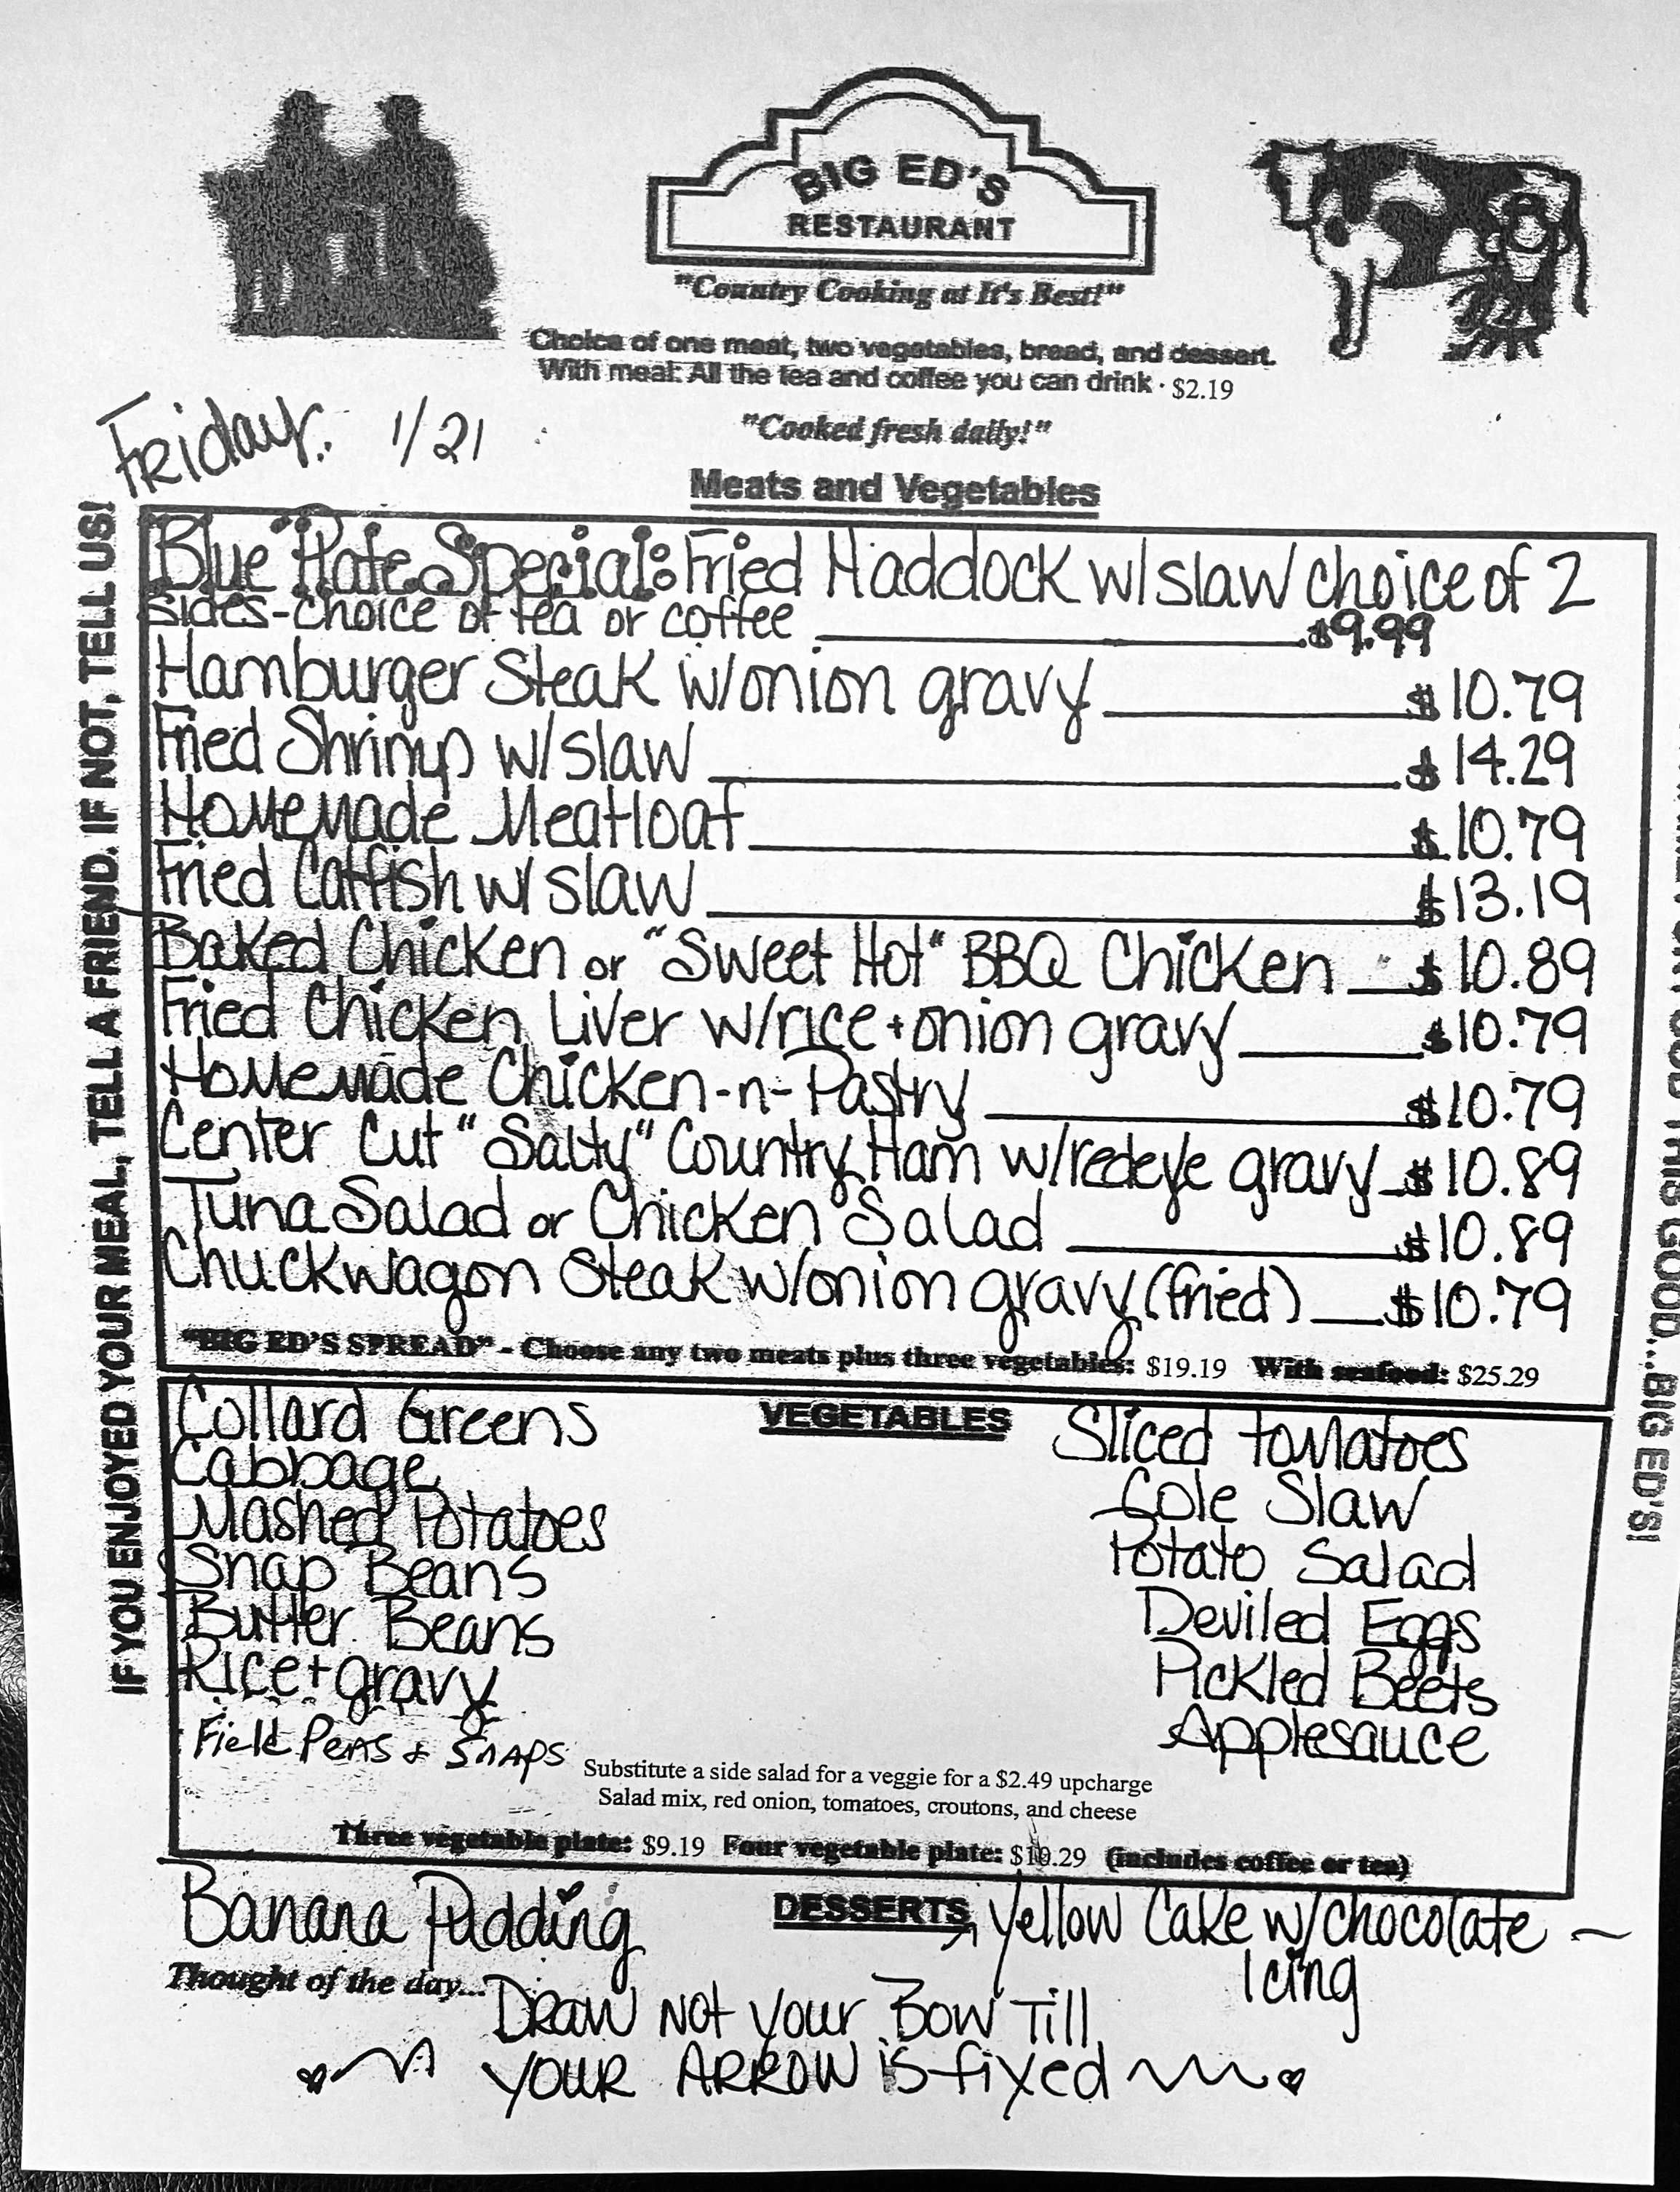 BIG ED'S
RESTAURANT
"Country Cooking at It's Best!"
Choice of one meat, two vegetables, bread, and dessert.
With meal: All the tea and coffee you can drink · $2.19
Friday: 1/21
"Cooked fresh daily!"
Meats and Vegetables
IF YOU ENJOYED YOUR MEAL, TELL A FRIEND. IF NOT, TELL US!
Blue Plate Special: Fried Haddock w/slaw choice of 2
sides-choice of tea or coffee $9.99
Hamburger Steak w/onion gravy $10.79
Fried Shrimp w/slaw $14.29
Homemade Meatloaf $10.79
Fried Catfish w/slaw $13.19
Baked Chicken or "Sweet Hot" BBQ Chicken $10.89
Fried Chicken Liver w/rice + onion gravy $10.79
Homemade Chicken-n-Pastry $10.79
Center Cut "Salty" Country Ham w/redeye gravy $10.89
Tuna Salad or Chicken Salad $10.89
Chuckwagon Steak w/onion gravy (fried) $10.79
"BIG ED'S SPREAD" - Choose any two meats plus three vegetables: $19.19 With seafood: $25.29
THIS GOOD... BIG ED'S!
VEGETABLES
Collard Greens
Cabbage
Mashed Potatoes
Snap Beans
Butter Beans
Rice + gravy
Field Peas & Snaps
Sliced tomatoes
Cole Slaw
Potato Salad
Deviled Eggs
Pickled Beets
Applesauce
Substitute a side salad for a veggie for a $2.49 upcharge
Salad mix, red onion, tomatoes, croutons, and cheese
Three vegetable plate: $9.19 Four vegetable plate: $10.29 (includes coffee or tea)
DESSERTS
Banana Pudding
Yellow Cake w/chocolate
Icing
Thought of the day...
Draw Not your Bow Till
YOUR ARROW is fixed